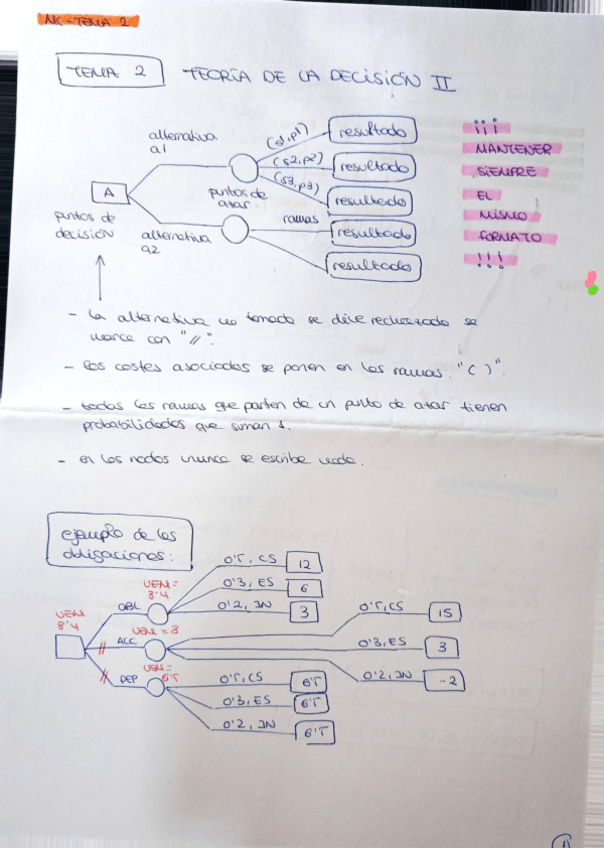 MC-TEMA 2
TEMA 2
TEORÍA DE LA DECISIÓN II
alternativa
a1
(s1,p1)
resultado
(s2,p2)
resultado
(s3,p3)
resultado
A
puntos de
azar
puntos de
decisión
alternativa
a2
ramas
resultado
resultado
¡¡¡
MANTENER
SIEMPRE
EL
MISMO
FORMATO
!!!
- la alternativa no tomada se dice rechazada se
marca con "//".
- los costes asociados se ponen en las ramas "( )".
- todas las ramas que parten de un punto de azar tienen
probabilidades que suman 1.
- en los nodos nunca se escribe nada.
ejemplo de las
obligaciones:
VEM
8'4
OBL
VEM =
8'4
0'5, CS
12
0'3, ES
6
0'2, IN
3
ACC
VEM = 8
0'5, CS
15
0'3, ES
3
0'2, IN
-2
DEP
VEM =
6'5
0'5, CS
6'5
0'3, ES
6'5
0'2, IN
6'5
1